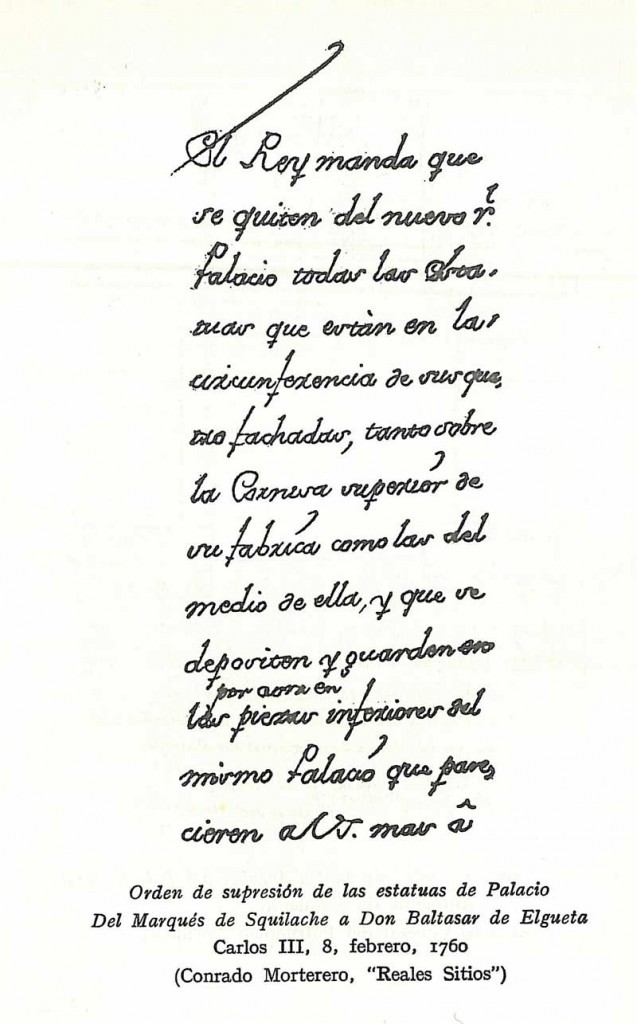 El Rey manda que
se quiten del nuevo r.l
Palacio todas las Esta-
tuas que están en la
circunferencia de sus qua-
tro fachadas, tanto sobre
la Cornisa superior de
su fabrica como las del
medio de ella, y que se
depositen y guarden en
por aora en
las piezas inferiores del
mismo Palacio que pare-
cieren a V.S. mas â
Orden de supresión de las estatuas de Palacio
Del Marqués de Squilache a Don Baltasar de Elgueta
Carlos III, 8, febrero, 1760
(Conrado Morterero, “Reales Sitios”)